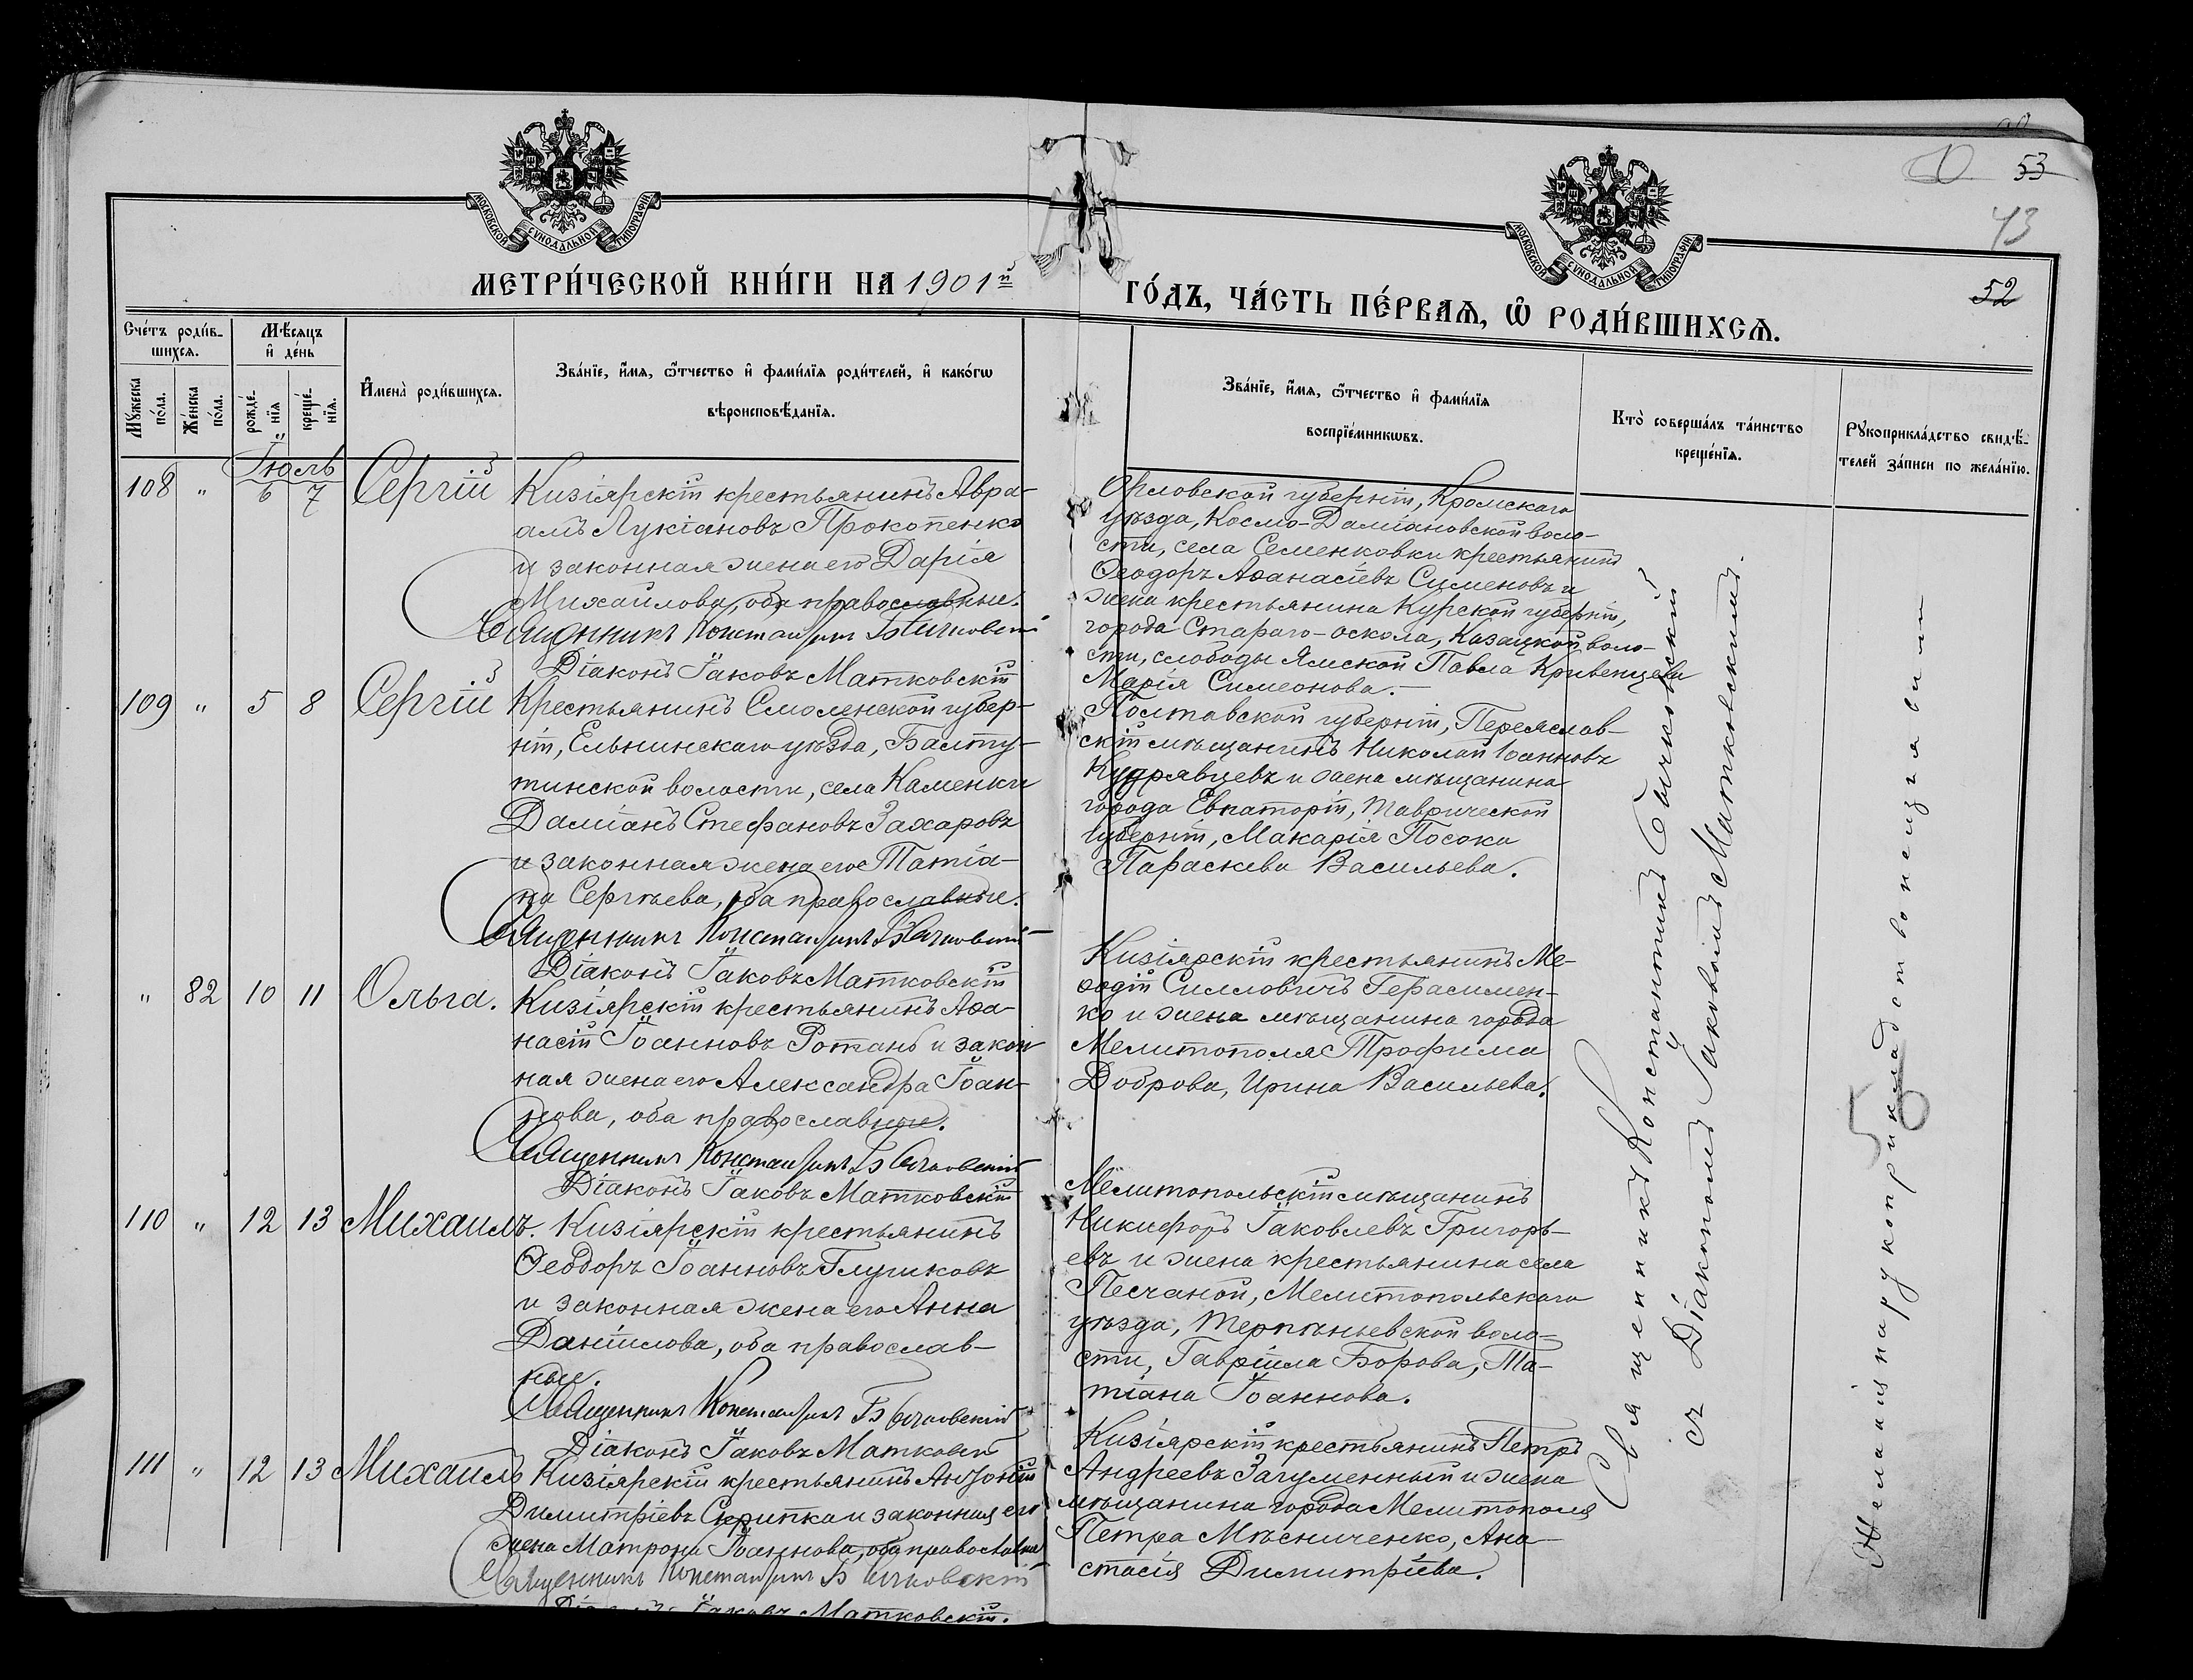 53
43
52
МОСКОВСКОЙ СѴНОДАЛЬНОЙ ТИПОГРАФІИ
МОСКОВСКОЙ СѴНОДАЛЬНОЙ ТИПОГРАФІИ
МЕТРИ́ЧЕСКОЙ КНИ́ГИ НА 1901й
ГО́ДЪ, ЧА́СТЬ ПЕ́РВАѦ, Ѡ҆ РОДИ́ВШИХСѦ.
Сче́тъ роди́в-
шихсѧ.
Мѣ́сяцъ
и҆ де́нь
Мꙋ́жеска
по́ла.
Же́нска
по́ла.
рожде́-
нїѧ
креще́-
нїѧ.
И҆мена̀ роди́вшихсѧ.
Зва́нїе, и҆́мѧ, ѻ҆́тчество и҆ фами́лїѧ роди́телей, и҆ како́гѡ
вѣроисповѣ́данїѧ.
Зва́нїе, и҆́мѧ, ѻ҆́тчество и҆ фами́лїѧ
воспрїе́мникѡвъ.
Кто̀ соверша́лъ та́инство
креще́нїѧ.
Рꙋкоприкла́дство свидѣ́-
телей за́писи по жела́нїю.
Іюль
108 " 6 7 Сергій
Кизіярскій крестьянинъ Авра-
амъ Лукіановъ Прокопенко
и законная жена его Дарія
Михаилова, оба православные.
Священникъ Константинъ Бычковскій
Діаконъ Іаковъ Матковскій
Орловской губерніи, Кромскаго
уѣзда, Космо-Даміановской воло-
сти, села Семенковки крестьянинъ
Ѳеодоръ Аѳанасіевъ Сименовъ и
жена крестьянина Курской губерніи,
города Стараго-Оскола, Казацкой воло-
сти, слободы Ямской Павла Кривенцева
Марія Симеонова.
109 " 5 8 Сергій
Крестьянинъ Смоленской губер-
ніи, Ельнинскаго уѣзда, Балту-
тинской волости, села Каменки
Даміанъ Стефановъ Захаровъ
и законная жена его Татіа-
на Сергѣева, оба православные.
Священникъ Константинъ Бычковскій
Діаконъ Іаковъ Матковскій
Полтавской губерніи, Переяслав-
скій мѣщанинъ Николай Іоанновъ
Кудрявцевъ и жена мѣщанина
города Евпаторіи, Таврической
губерніи, Макарія Посока
Параскева Васильева.
" 82 10 11 Ольга.
Кизіярскій крестьянинъ Аѳа-
насій Іоанновъ Ротань и закон
ная жена его Александра Іоан-
нова, оба православные.
Священникъ Константинъ Бычковскій
Діаконъ Іаковъ Матковскій
Кизіярскій крестьянинъ Ме-
ѳодій Силловичъ Герасимен-
ко и жена мѣщанина города
Мелитополя Трофима
Доброва, Ирина Васильева.
110 " 12 13 Михаилъ.
Кизіярскій крестьянинъ
Ѳеодоръ Іоанновъ Глушковъ
и законная жена его Анна
Даніилова, оба православ-
ные.
Священникъ Константинъ Бычковскій
Діаконъ Іаковъ Матковскій
Мелитопольскій мѣщанинъ
Никифоръ Іаковлевъ Григорь-
евъ и жена крестьянина села
Песчаной, Мелитопольскаго
уѣзда, Терпѣньевской воло-
сти, Гавріила Борова, Та-
тіана Іоаннова.
111 " 12 13 Михаилъ
Кизіярскій крестьянинъ Антоній
Димитріевъ Скрипка и законная его
жена Матрона Іоаннова, оба православные
Священникъ Константинъ Бычковскій
Діаконъ Іаковъ Матковскій.
Кизіярскій крестьянинъ Петръ
Андреевъ Загуменный и жена
мѣщанина города Мелитополя
Петра Мѣсниченко, Ана-
стасія Димитріева.
Священникъ Константинъ Бычковскій
съ Діакономъ Іаковомъ Матковскимъ.
Желающихъ рукоприкладствовать не явилось
5